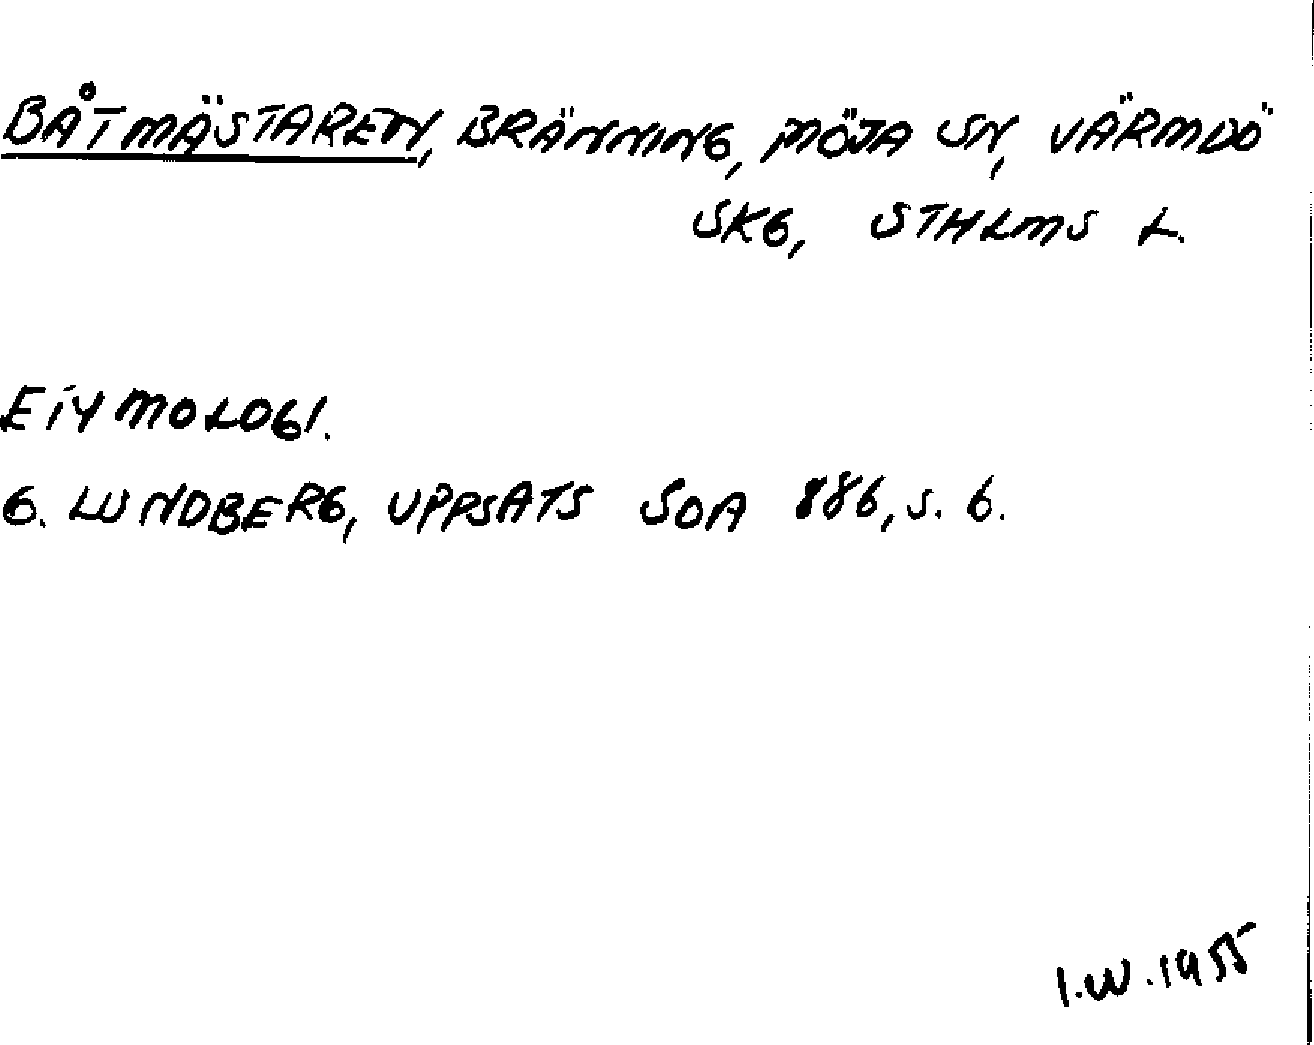 BÅTMÄSTAREN, BRÄNNING, MÖJA SN, VÄRMDÖ
SKG, STHLMS L.
ETYMOLOGI.
G. LUNDBERG, UPPSATS SOA 886, S. 6.
I.W.1955